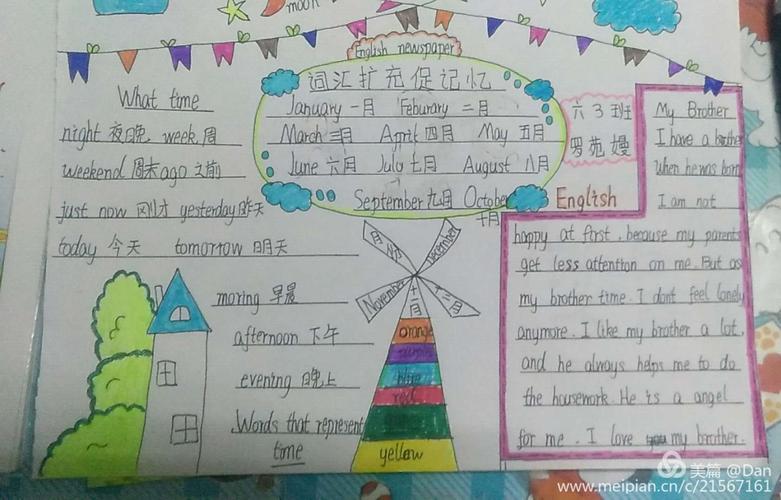 moon
English newspaper
What time
night 夜晚 week 周
weekend 周末 ago 之前
just now 刚才 yesterday 昨天
today 今天 tomorrow 明天
moring 早晨
afternoon 下午
evening 晚上
Words that represent
time
词汇扩充促记忆
January 一月 Feburary 二月
March 三月 April 四月 May 五月
June 六月 July 七月 August 八月
September 九月 October
十月
November 十一月
December 十二月
月份
orange
purple
blue
red
yellow
六3班
罗苑嫚
English
My Brother
I have a brother
when he was born
I am not
happy at first, because my parents
get less attention on me. But as
my brother time. I dont feel lonely
anymore. I like my brother a lot,
and he always helps me to do
the housework. He is a angel
for me. I love my brother.
美篇 @Dan
www.meipian.cn/c/21567161